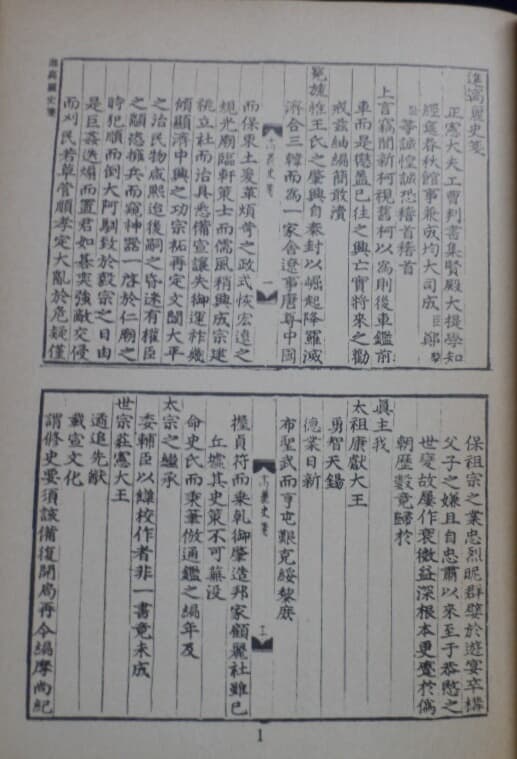 進高麗史箋
進高麗史箋
正憲大夫工曹判書集賢殿大提學知
經筵春秋館事兼成均大司成臣鄭麟趾
等誠惶誠恐稽首稽首
上言竊聞新柯視舊柯以爲則後車鑑前
車而是懲盖已往之興亡實將來之勸
戒玆紬編簡敢瀆
冕旒惟王氏之肇興自泰封以崛起降羅滅
濟合三韓而爲一家舍遼事唐尊中國
而保東土爰革煩苛之政式恢宏遠之
規光廟臨軒策士而儒風稍興成宗建
祧立社而治具悉備宣讓失御運祚幾
傾顯濟中興之功宗祏再定文闡大平
之治民物咸熙迨後嗣之昏迷有權臣
之顓恣擁兵而窺神器一啓於仁廟之
時犯順而倒大阿馴致於毅宗之日由
是巨姦迭煽而置君如碁奕強敵交侵
而刈民若草菅順孝定大亂於危疑僅
高麗史箋
一
保祖宗之業忠烈昵群嬖於遊宴卒構
父子之嫌且自忠肅以來至于恭愍之
世變故屢作衰微益深根本更蹙於僞
朝歷數竟歸於
眞主我
太祖康獻大王
勇智天錫
德業日新
布聖武而亨屯艱克綏黎庶
握貞符而乘乾御肇造邦家顧麗社雖已
丘墟其史策不可蕪沒
命史氏而秉筆倣通鑑之編年及
太宗之繼承
委輔臣以讎校作者非一書竟未成
世宗莊憲大王
遹追先猷
載宣文化
謂修史要須該備復開局再令編摩尚紀
高麗史箋
二
1